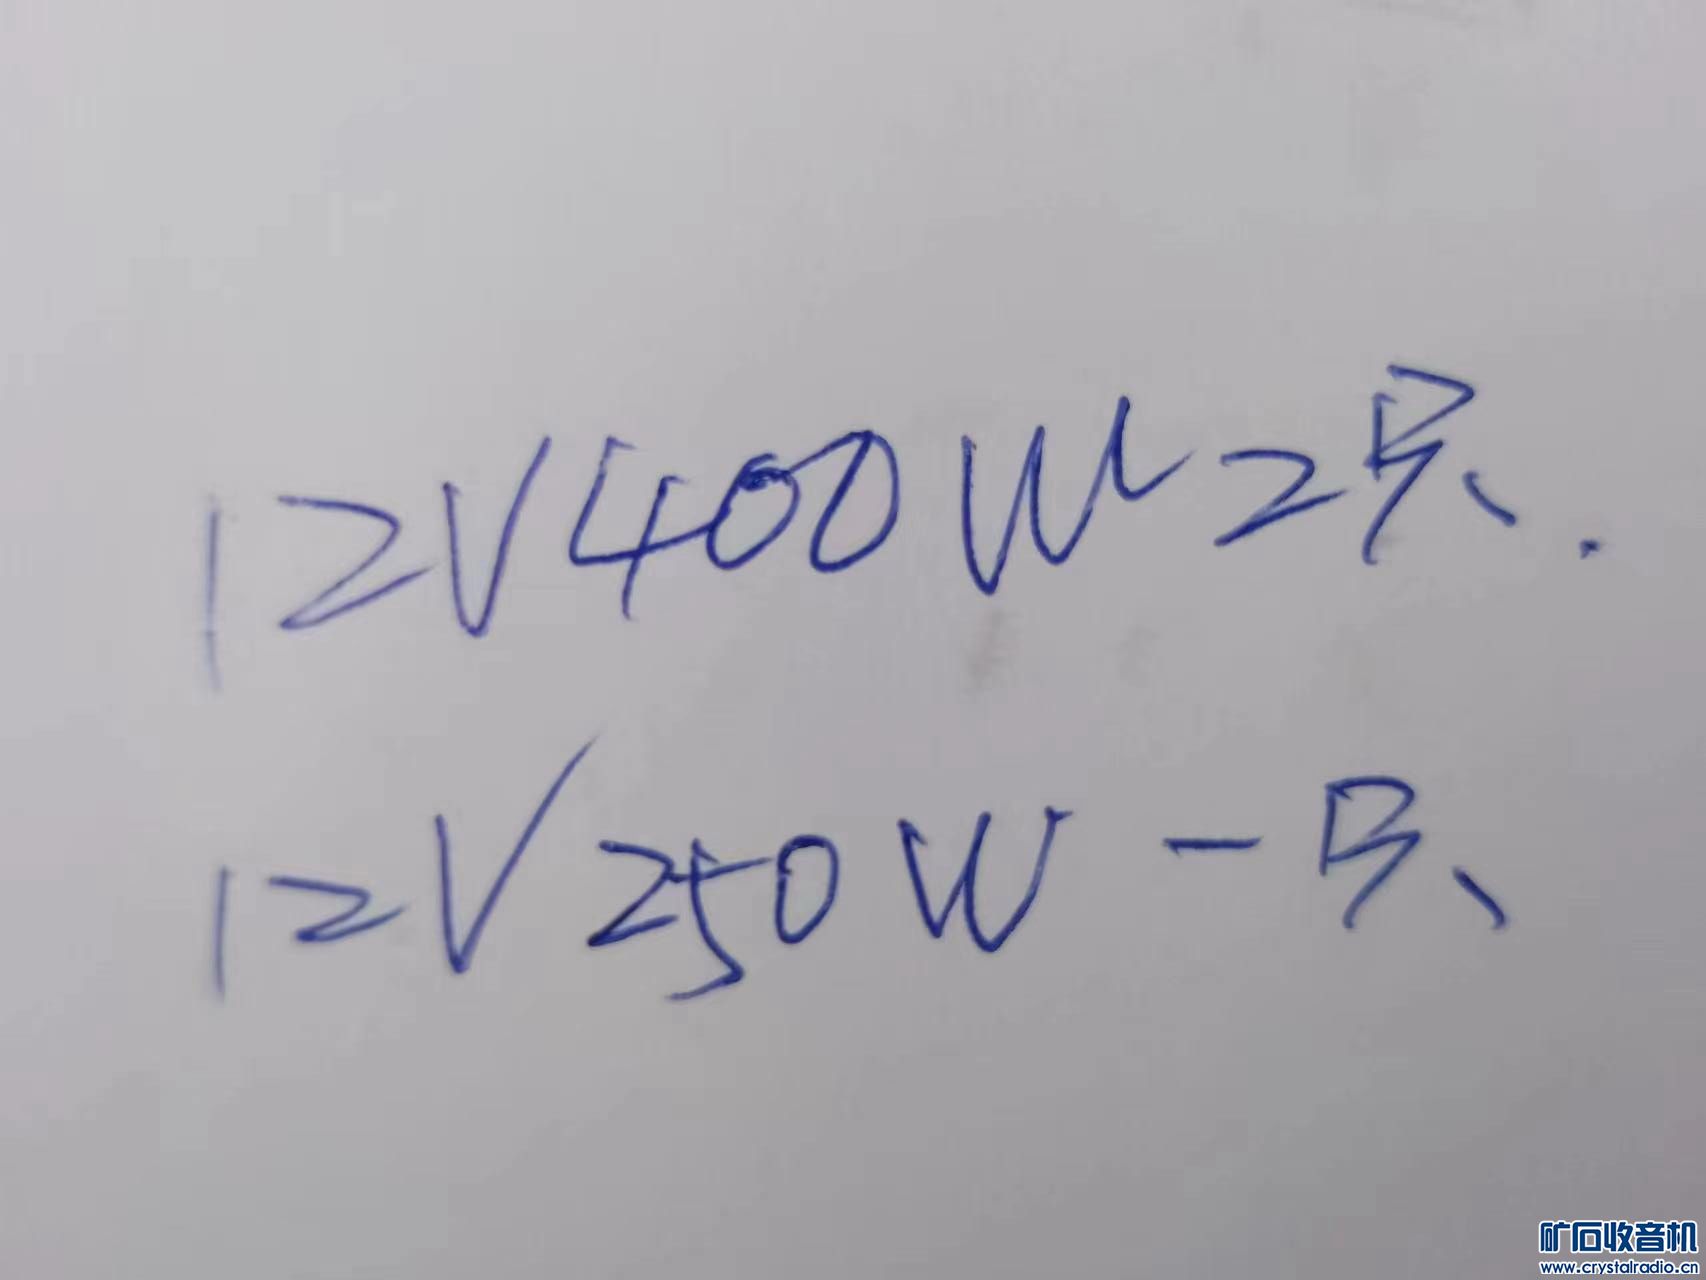 12V400W2只.
12V250W一只
矿石收音机
www.crystalradio.cn